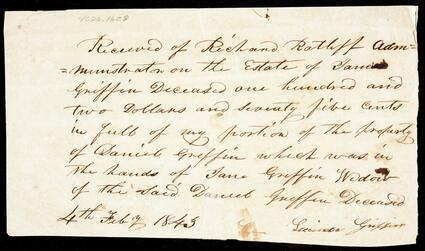 9026.1608
Received of Richard Ratliff Adm=
=ministrator on the Estate of Daniel
Griffin Deceased one hundred and
two Dollars and seventy five cents
in full of my portion of the property
of Daniel Griffin which was in
the hands of Jane Griffin Widow
of the said Daniel Griffin Deceased
4th Feby 1843
Griffin